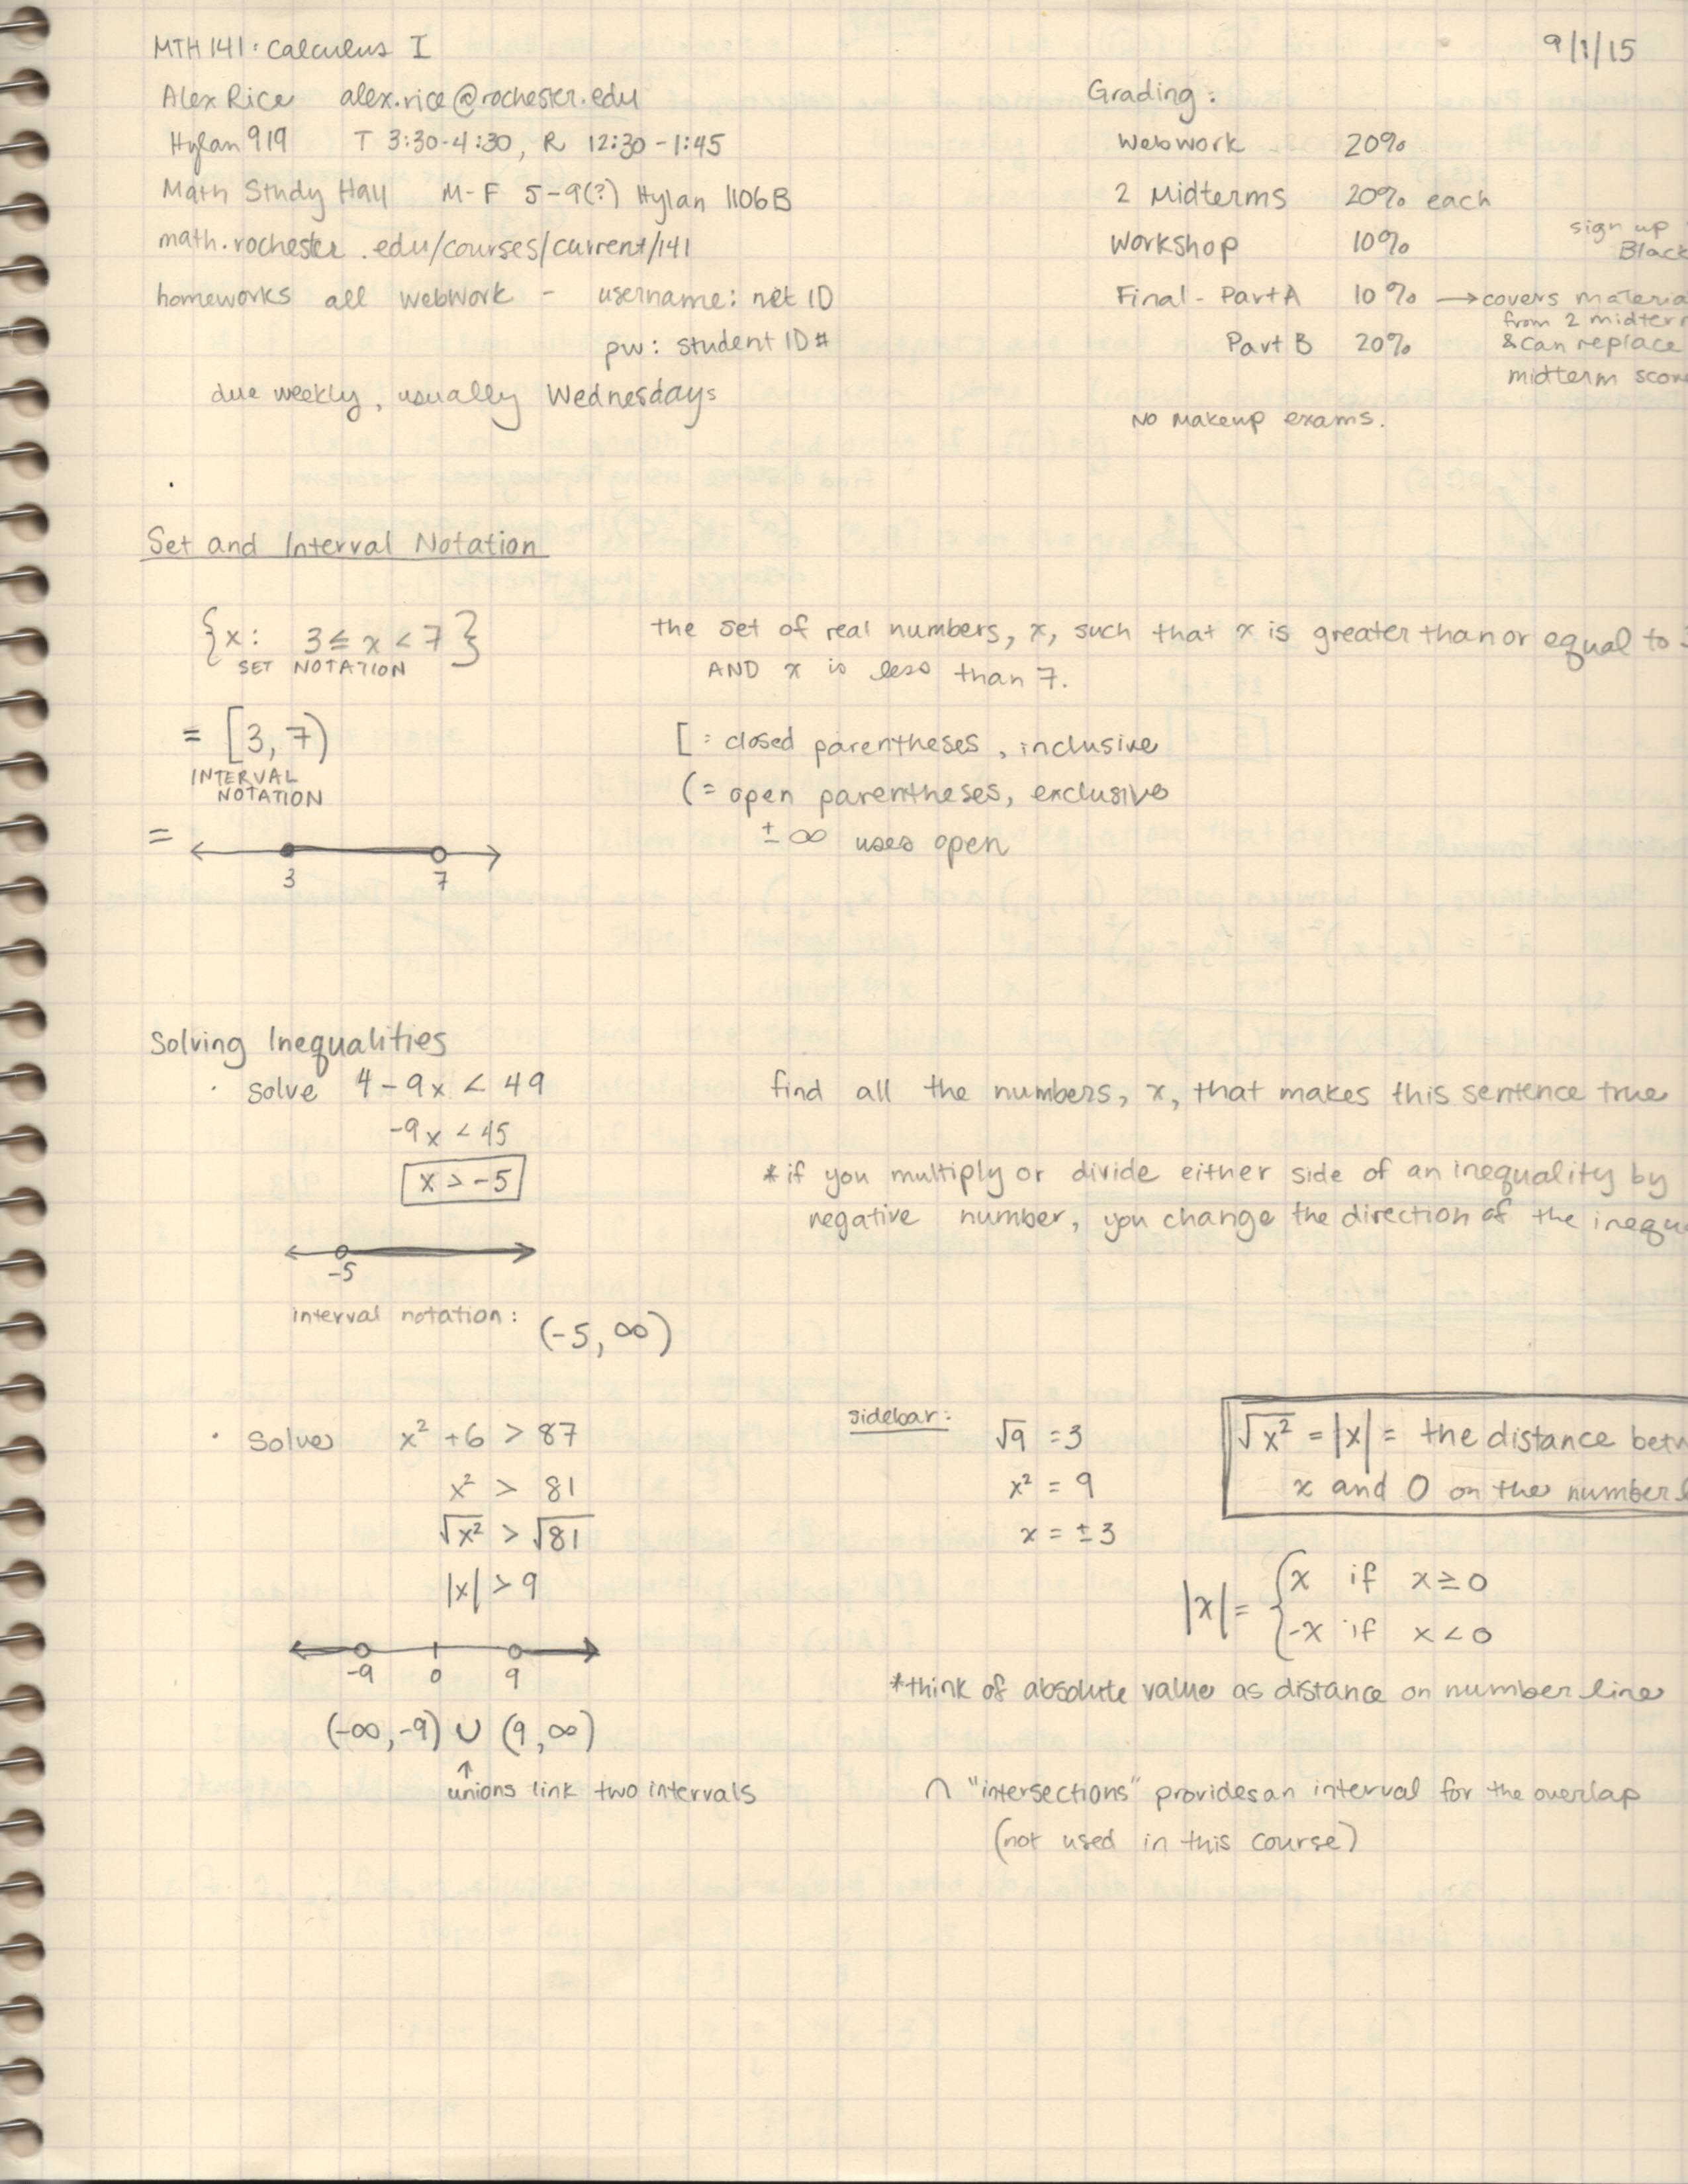 MTH 141: Calculus I
9/1/15
Alex Rice alex.rice@rochester.edu
Hylan 919 T 3:30-4:30, R 12:30-1:45
Math Study Hall M-F 5-9(?) Hylan 1106B
math.rochester.edu/courses/current/141
homeworks all webwork - username: net ID
pw: student ID#
due weekly, usually Wednesdays
Grading:
Webwork 20%
2 Midterms 20% each
Workshop 10%
sign up
Black
Final - Part A 10% → covers materia
from 2 midter
Part B 20%
& can replace
midterm scor
No makeup exams.
Set and Interval Notation
{x: 3 ≤ x < 7}
SET NOTATION
the set of real numbers, x, such that x is greater than or equal to 3
AND x is less than 7.
= [3, 7)
INTERVAL
NOTATION
[ = closed parentheses, inclusive
( = open parentheses, exclusive
± ∞ uses open
=
3 7
Solving Inequalities
· Solve 4 - 9x < 49
find all the numbers, x, that makes this sentence true
-9x < 45
x > -5
* if you multiply or divide either side of an inequality by
negative number, you change the direction of the inequ
-5
interval notation: (-5, ∞)
· Solve x² + 6 > 87
x² > 81
√x² > √81
|x| > 9
-9 0 9
(-∞, -9) ∪ (9, ∞)
↑
unions link two intervals
sidebar:
√9 = 3
x² = 9
x = ±3
√x² = |x| = the distance betw
x and 0 on the number l
|x| = { x if x ≥ 0
-x if x < 0
*think of absolute value as distance on number line
∩ "intersections" provides an interval for the overlap
(not used in this course)